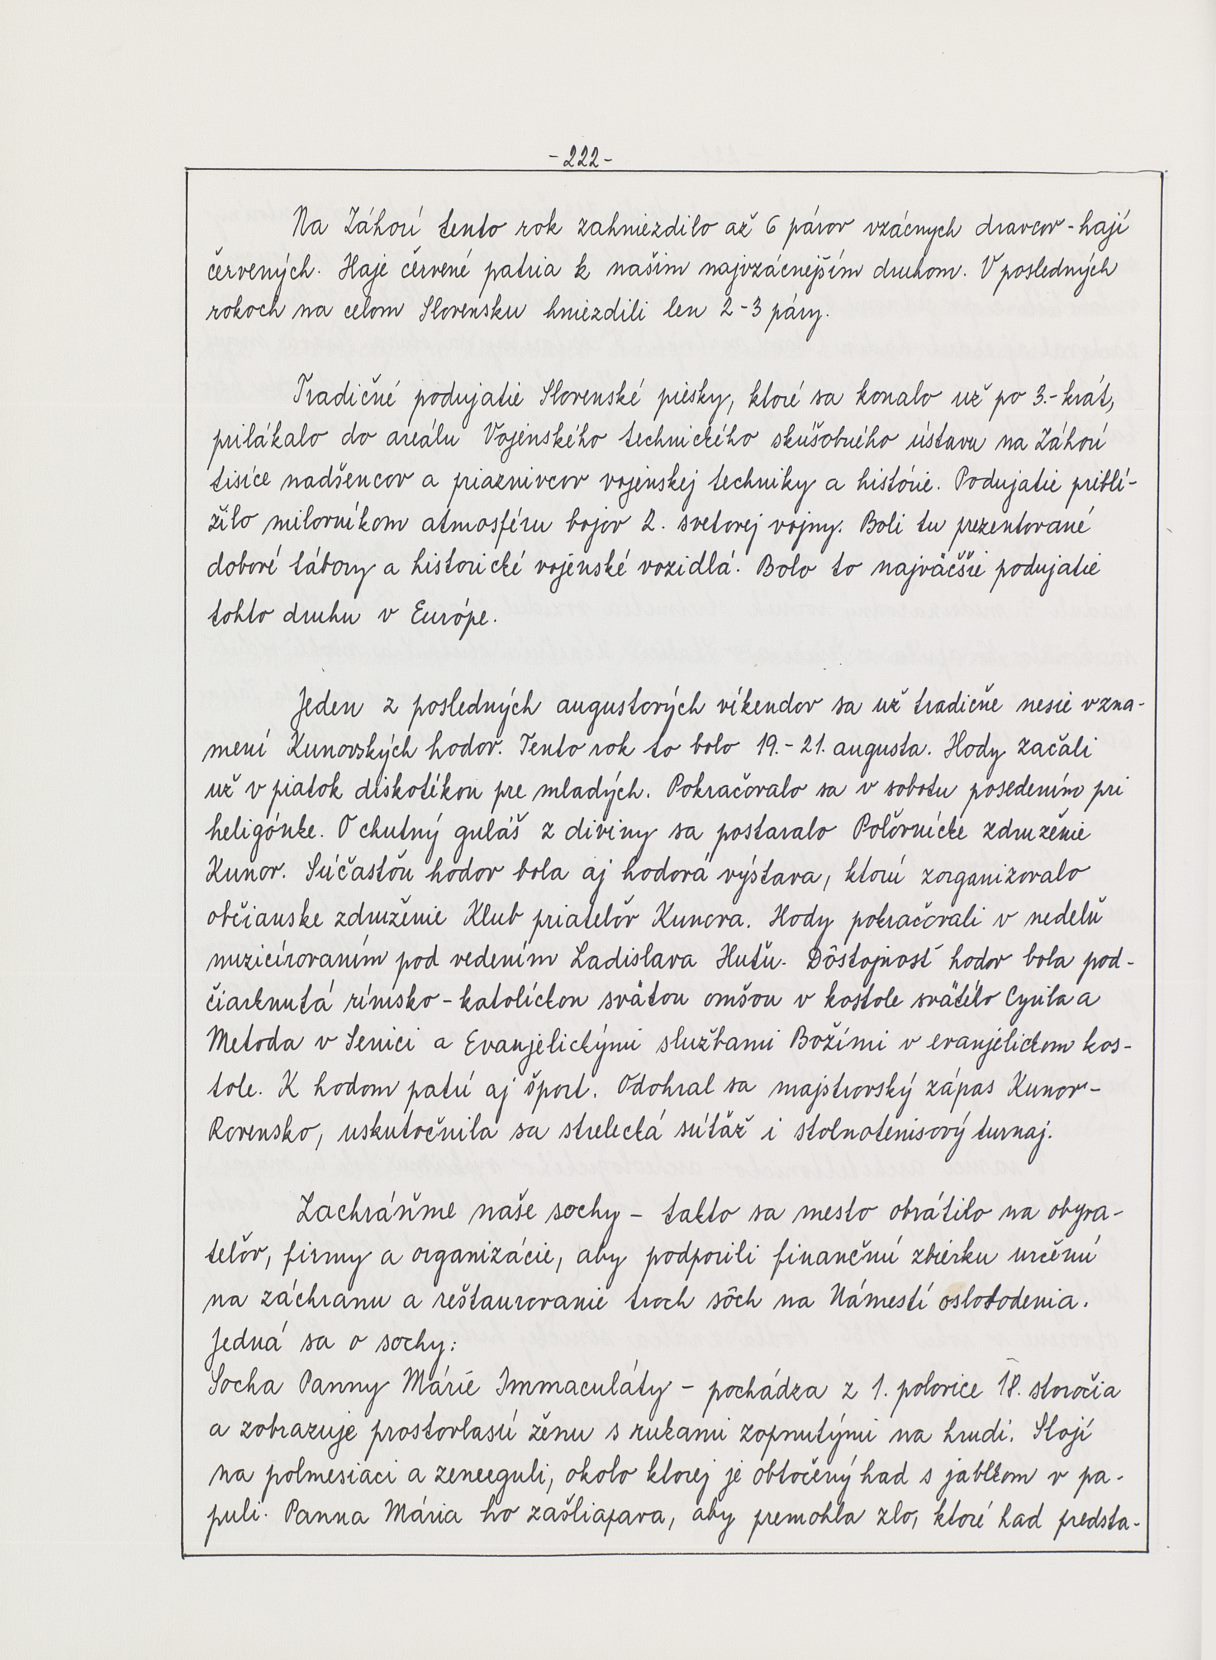 -222-
Na Záhorí tento rok zahniezdilo až 6 párov vzácnych dravcov - hají
červených. Haje červené patria k našim najvzácnejším druhom. V posledných
rokoch na celom Slovensku hniezdili len 2-3 páry.
Tradičné podujatie Slovenské piesky, ktoré sa konalo už po 3.-krát,
prilákalo do areálu Vojenského technického skúšobného ústavu na Záhorí
tisíce nadšencov a priaznivcov vojenskej techniky a histórie. Podujatie priblí-
žilo milovníkom atmosféru bojov 2. svetovej vojny. Boli tu prezentované
dobové tábory a historické vojenské vozidlá. Bolo to najväčšie podujatie
tohto druhu v Európe.
Jeden z posledných augustových víkendov sa už tradične nesie v zna-
mení Kunovských hodov. Tento rok to bolo 19.-21. augusta. Hody začali
už v piatok diskotékou pre mladých. Pokračovalo sa v sobotu posedením pri
heligónke. O chutný guláš z diviny sa postaralo Poľovnícke združenie
Kunov. Súčasťou hodov bola aj hodová výstava, ktorú zorganizovalo
občianske združenie Klub priateľov Kunova. Hody pokračovali v nedeľu
muzicírovaním pod vedením Ladislava Huťu. Dôstojnosť hodov bola pod-
čiarknutá rímsko-katolíckou svätou omšou v kostole svätého Cyrila a
Metoda v Senici a Evanjelickými službami Božími v evanjelickom kos-
tole. K hodom patrí aj šport. Odohral sa majstrovský zápas Kunov -
Rovensko, uskutočnila sa strelecká súťaž i stolnotenisový turnaj.
Zachráňme naše sochy - takto sa mesto obrátilo na obyva-
teľov, firmy a organizácie, aby podporili finančnú zbierku určenú
na záchranu a reštaurovanie troch sôch na Námestí oslobodenia.
Jedná sa o sochy:
Socha Panny Márie Immaculáty - pochádza z 1. polovice 18. storočia
a zobrazuje prostovlasú ženu s rukami zopnutými na hrudi. Stojí
na polmesiaci a zemeguli, okolo ktorej je obtočený had s jablkom v pa-
puli. Panna Mária ho zašliapava, aby premohla zlo, ktoré had predsta-